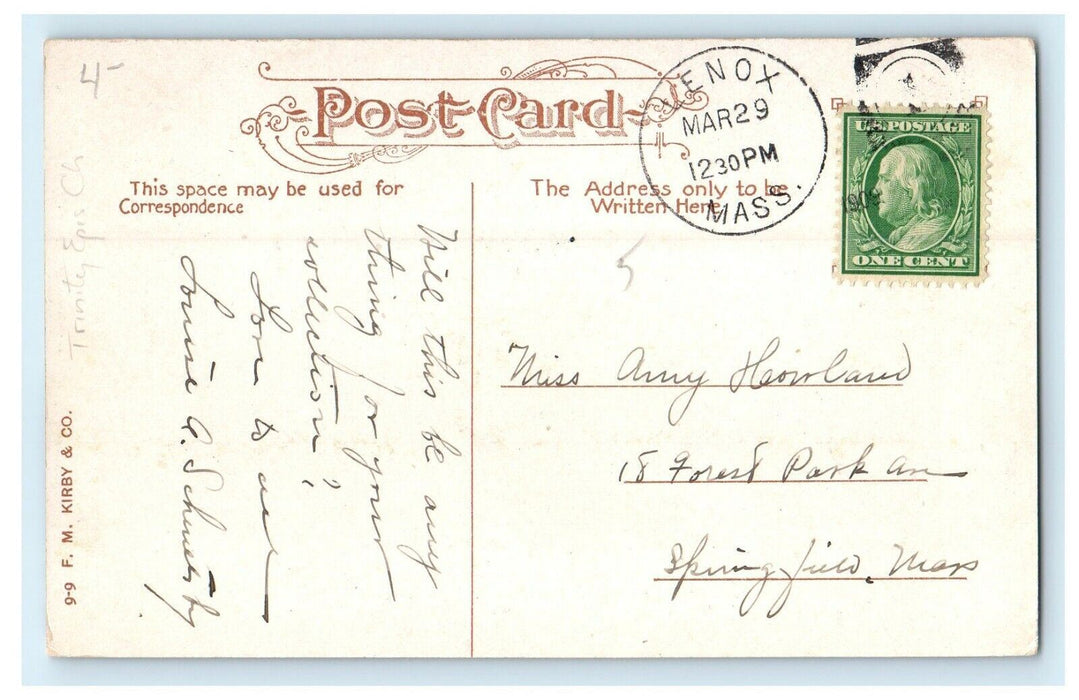 4-
Post Card
LENOX
MAR 29
12 30 PM
MASS.
1909
U.S. POSTAGE
ONE CENT
This space may be used for
Correspondence
The Address only to be
Written Here.
5
Trinity Epis Ch
Will this be any
thing for your
collection?
Love to all
Louise A.
Miss Amy Howland
18 Forest Park Av
Springfield, Mass
9-9 F. M. KIRBY & CO.